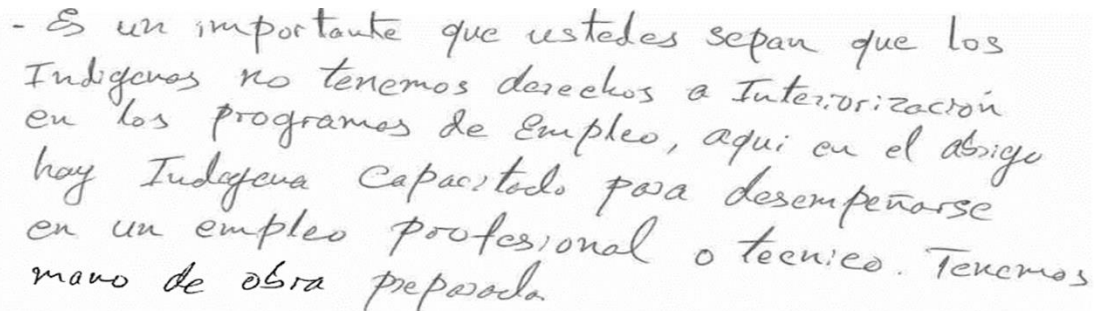 - Es un importante que ustedes sepan que los
Indigenas no tenemos derechos a Interiorización
en los programas de Empleo, aqui en el abrigo
hay Indagena Capacitado para desempeñarse
en un empleo profesional o tecnico. Tenemos
mano de obra preparada